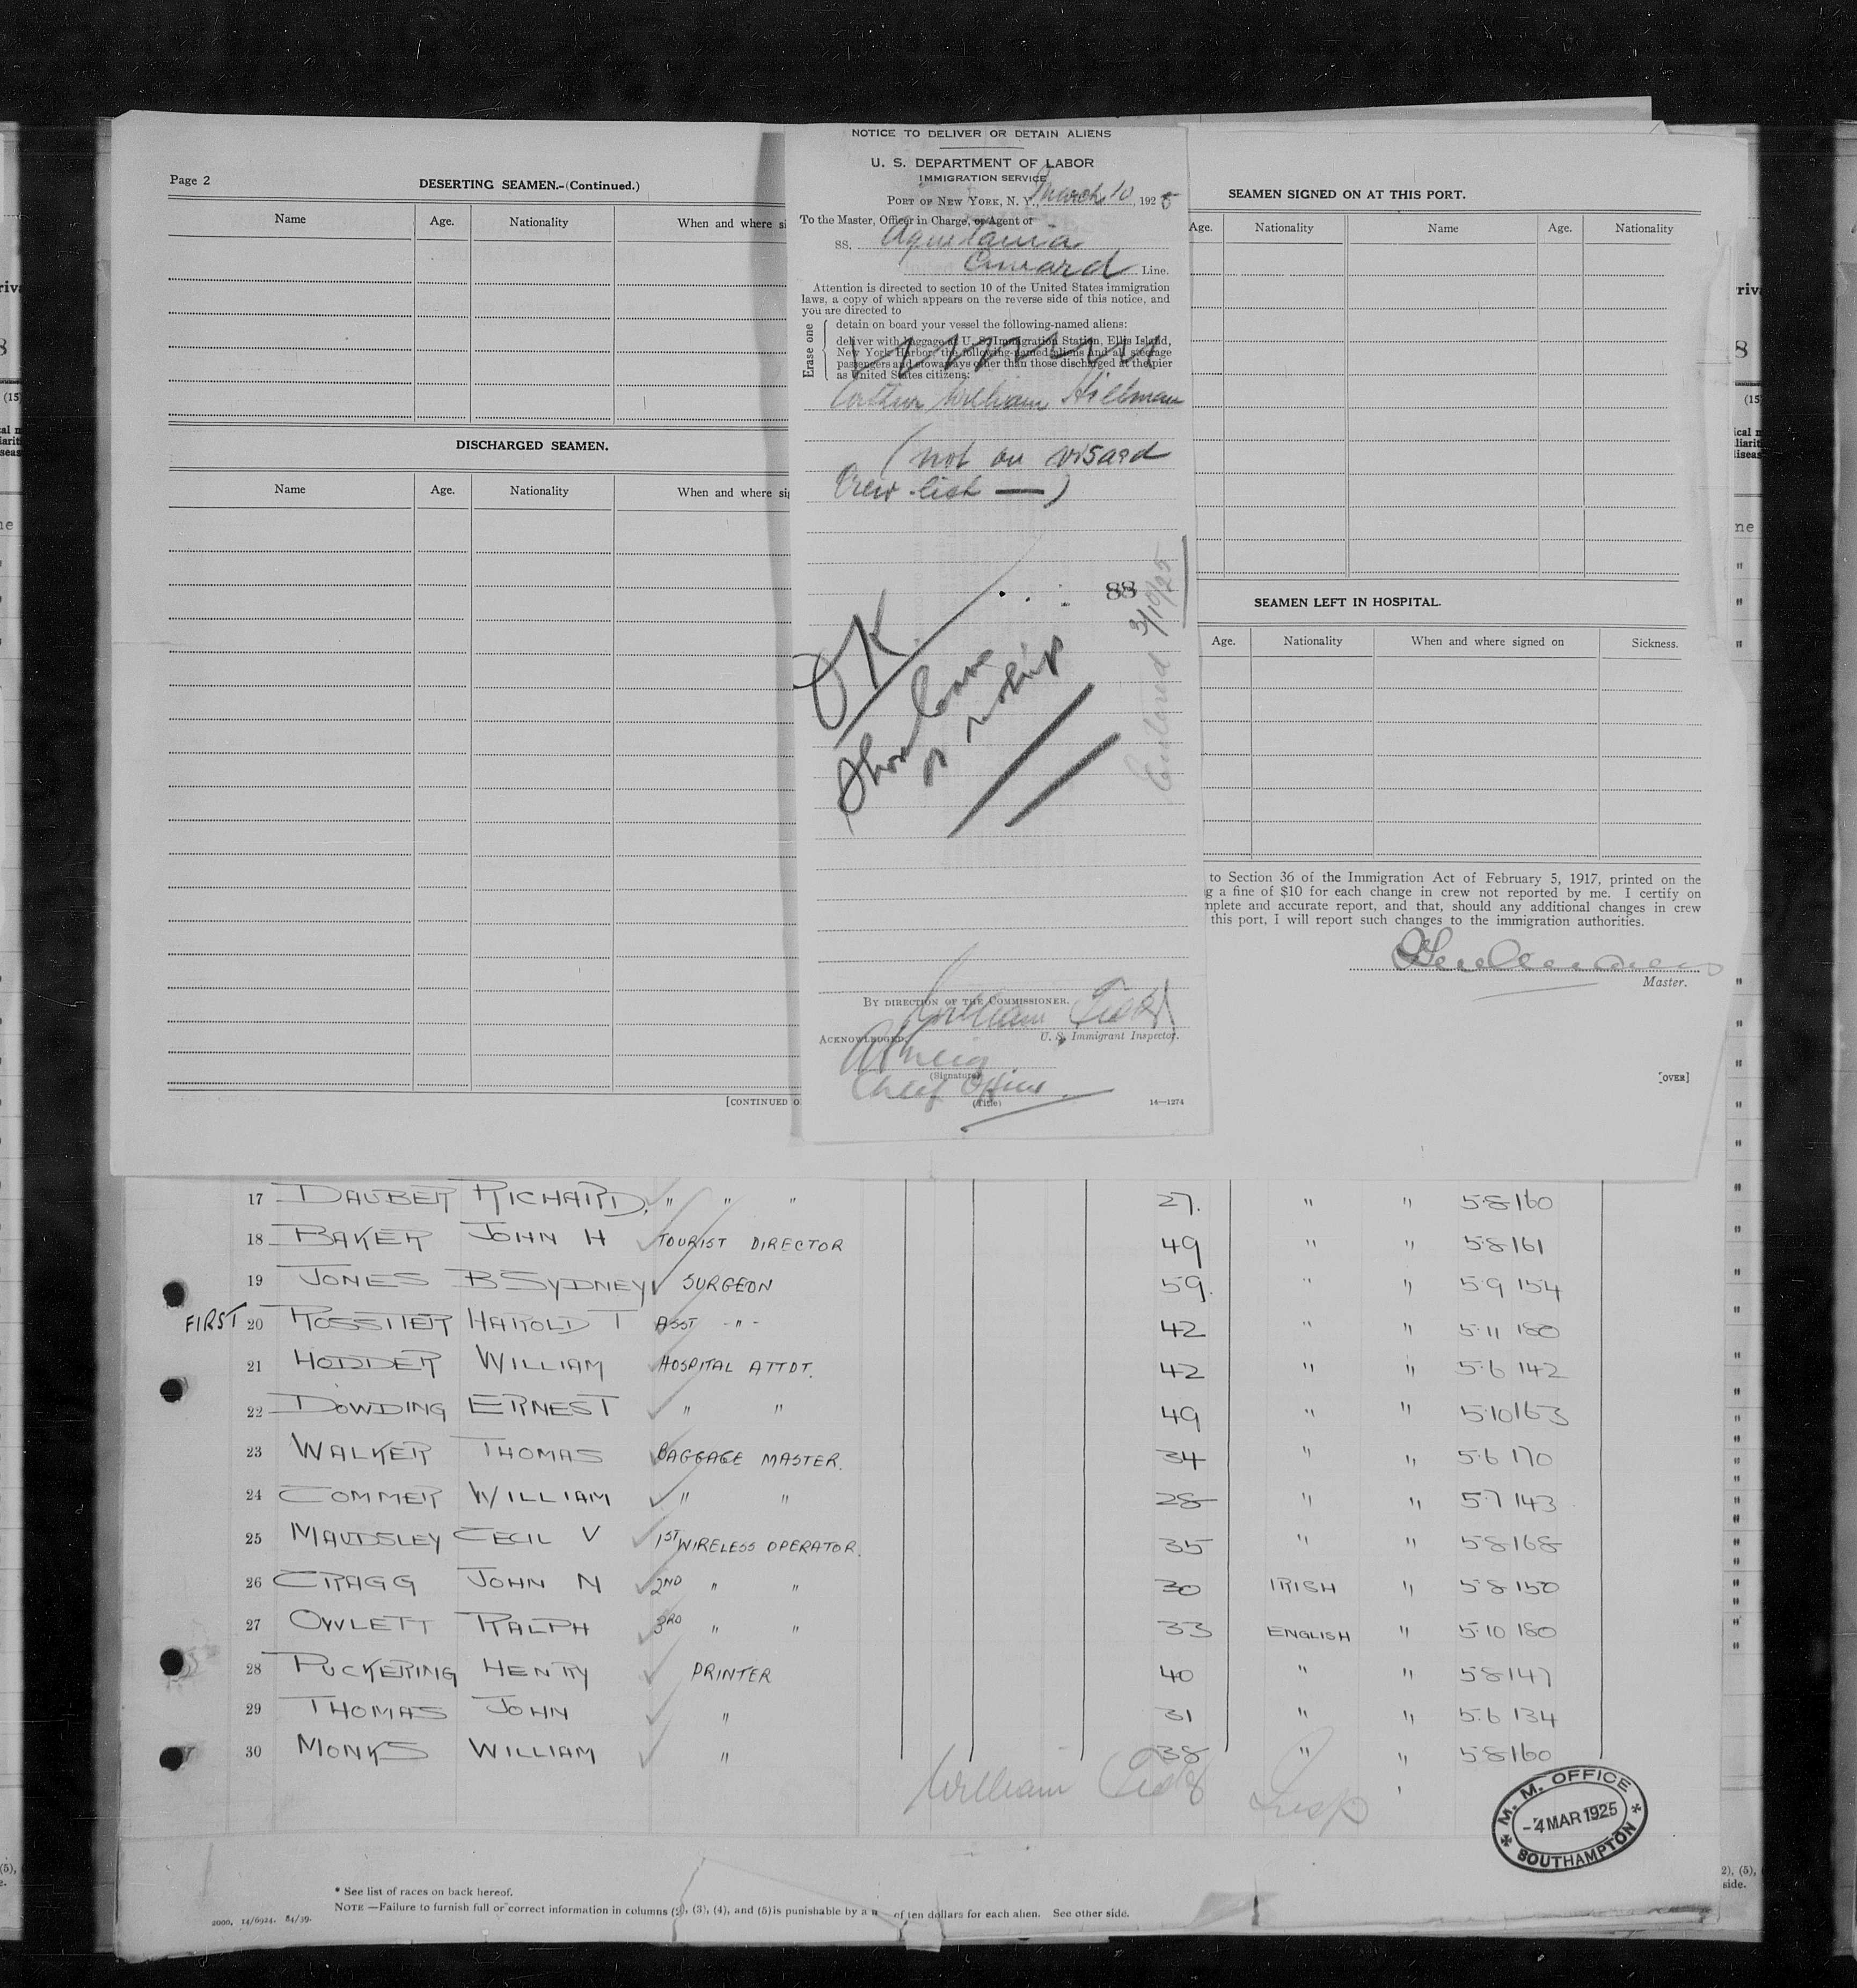 Page 2
DESERTING SEAMEN.-(Continued.)
Name Age. Nationality When and where si
DISCHARGED SEAMEN.
Name Age. Nationality When and where sig
[CONTINUED O
NOTICE TO DELIVER OR DETAIN ALIENS
U. S. DEPARTMENT OF LABOR
IMMIGRATION SERVICE
PORT OF NEW YORK, N. Y., March 10, 1925
To the Master, Officer in Charge, or Agent of
SS. Aquitania
Cunard Line.
Attention is directed to section 10 of the United States immigration
laws, a copy of which appears on the reverse side of this notice, and
you are directed to
Erase one
detain on board your vessel the following-named aliens:
deliver with baggage at U. S. Immigration Station, Ellis Island,
New York Harbor, the following-named aliens and all steerage
passengers and stowaways other than those discharged at the pier
as United States citizens:
Arthur William Hillman
(not on visaed
Crew list —)
88
OK
Shore leave
or reship
3/10/25
BY DIRECTION OF THE COMMISSIONER.
William
ACKNOWLEDGED:
U. S. Immigrant Inspector.
(Signature)
Chief Officer
(Title)
14—1274
SEAMEN SIGNED ON AT THIS PORT.
Age. Nationality Name Age. Nationality
SEAMEN LEFT IN HOSPITAL.
Age. Nationality When and where signed on Sickness.
to Section 36 of the Immigration Act of February 5, 1917, printed on the
g a fine of $10 for each change in crew not reported by me. I certify on
mplete and accurate report, and that, should any additional changes in crew
this port, I will report such changes to the immigration authorities.
Master.
[OVER]
17 DAUBER RICHARD. " " " 27. " " 5·8 160
18 BAKER JOHN H TOURIST DIRECTOR 49 " " 5·8 161
19 JONES B SYDNEY SURGEON 59. " " 5·9 154
FIRST 20 ROSSITER HAROLD T ASST -"- 42 " " 5·11 180
21 HODDER WILLIAM HOSPITAL ATTDT. 42 " " 5·6 142
22 DOWDING ERNEST " " 49 " " 5·10 163
23 WALKER THOMAS BAGGAGE MASTER. 34 " " 5·6 170
24 COMMER WILLIAM " " 28 " " 5·7 143
25 MAUDSLEY CECIL V 1ST WIRELESS OPERATOR. 35 " " 5·8 168
26 CRAGG JOHN N 2ND " " 30 IRISH " 5·8 150
27 OWLETT RALPH 3RD " " 33 ENGLISH " 5·10 180
28 PUCKERING HENRY PRINTER 40 " " 5·8 147
29 THOMAS JOHN " 31 " " 5·6 134
30 MONKS WILLIAM " 38 " " 5·8 160
William Insp
M. M. OFFICE
-4 MAR 1925
SOUTHAMPTON
* See list of races on back hereof.
NOTE —Failure to furnish full or correct information in columns (2), (3), (4), and (5) is punishable by a of ten dollars for each alien. See other side.
2000. 14/6924. 84/39.